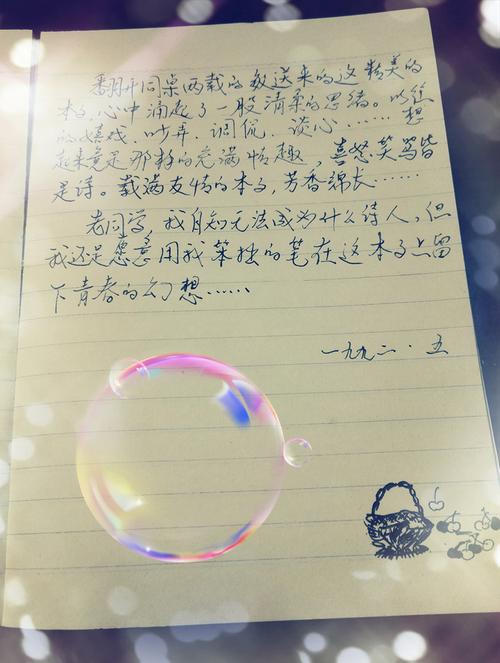 翻开同桌两载的敏送来的这精美的
本子,心中涌起了一股清柔的思绪。以往
的嬉戏、吵弄、调侃、谈心……想
起来竟是那样的充满情趣,喜怒笑骂皆
是诗。载满友情的本子,芳香绵长……
老同学,我自知无法成为什么诗人,但
我还是愿意用我笨拙的笔在这本子上留
下青春的幻想……
一九九二·五